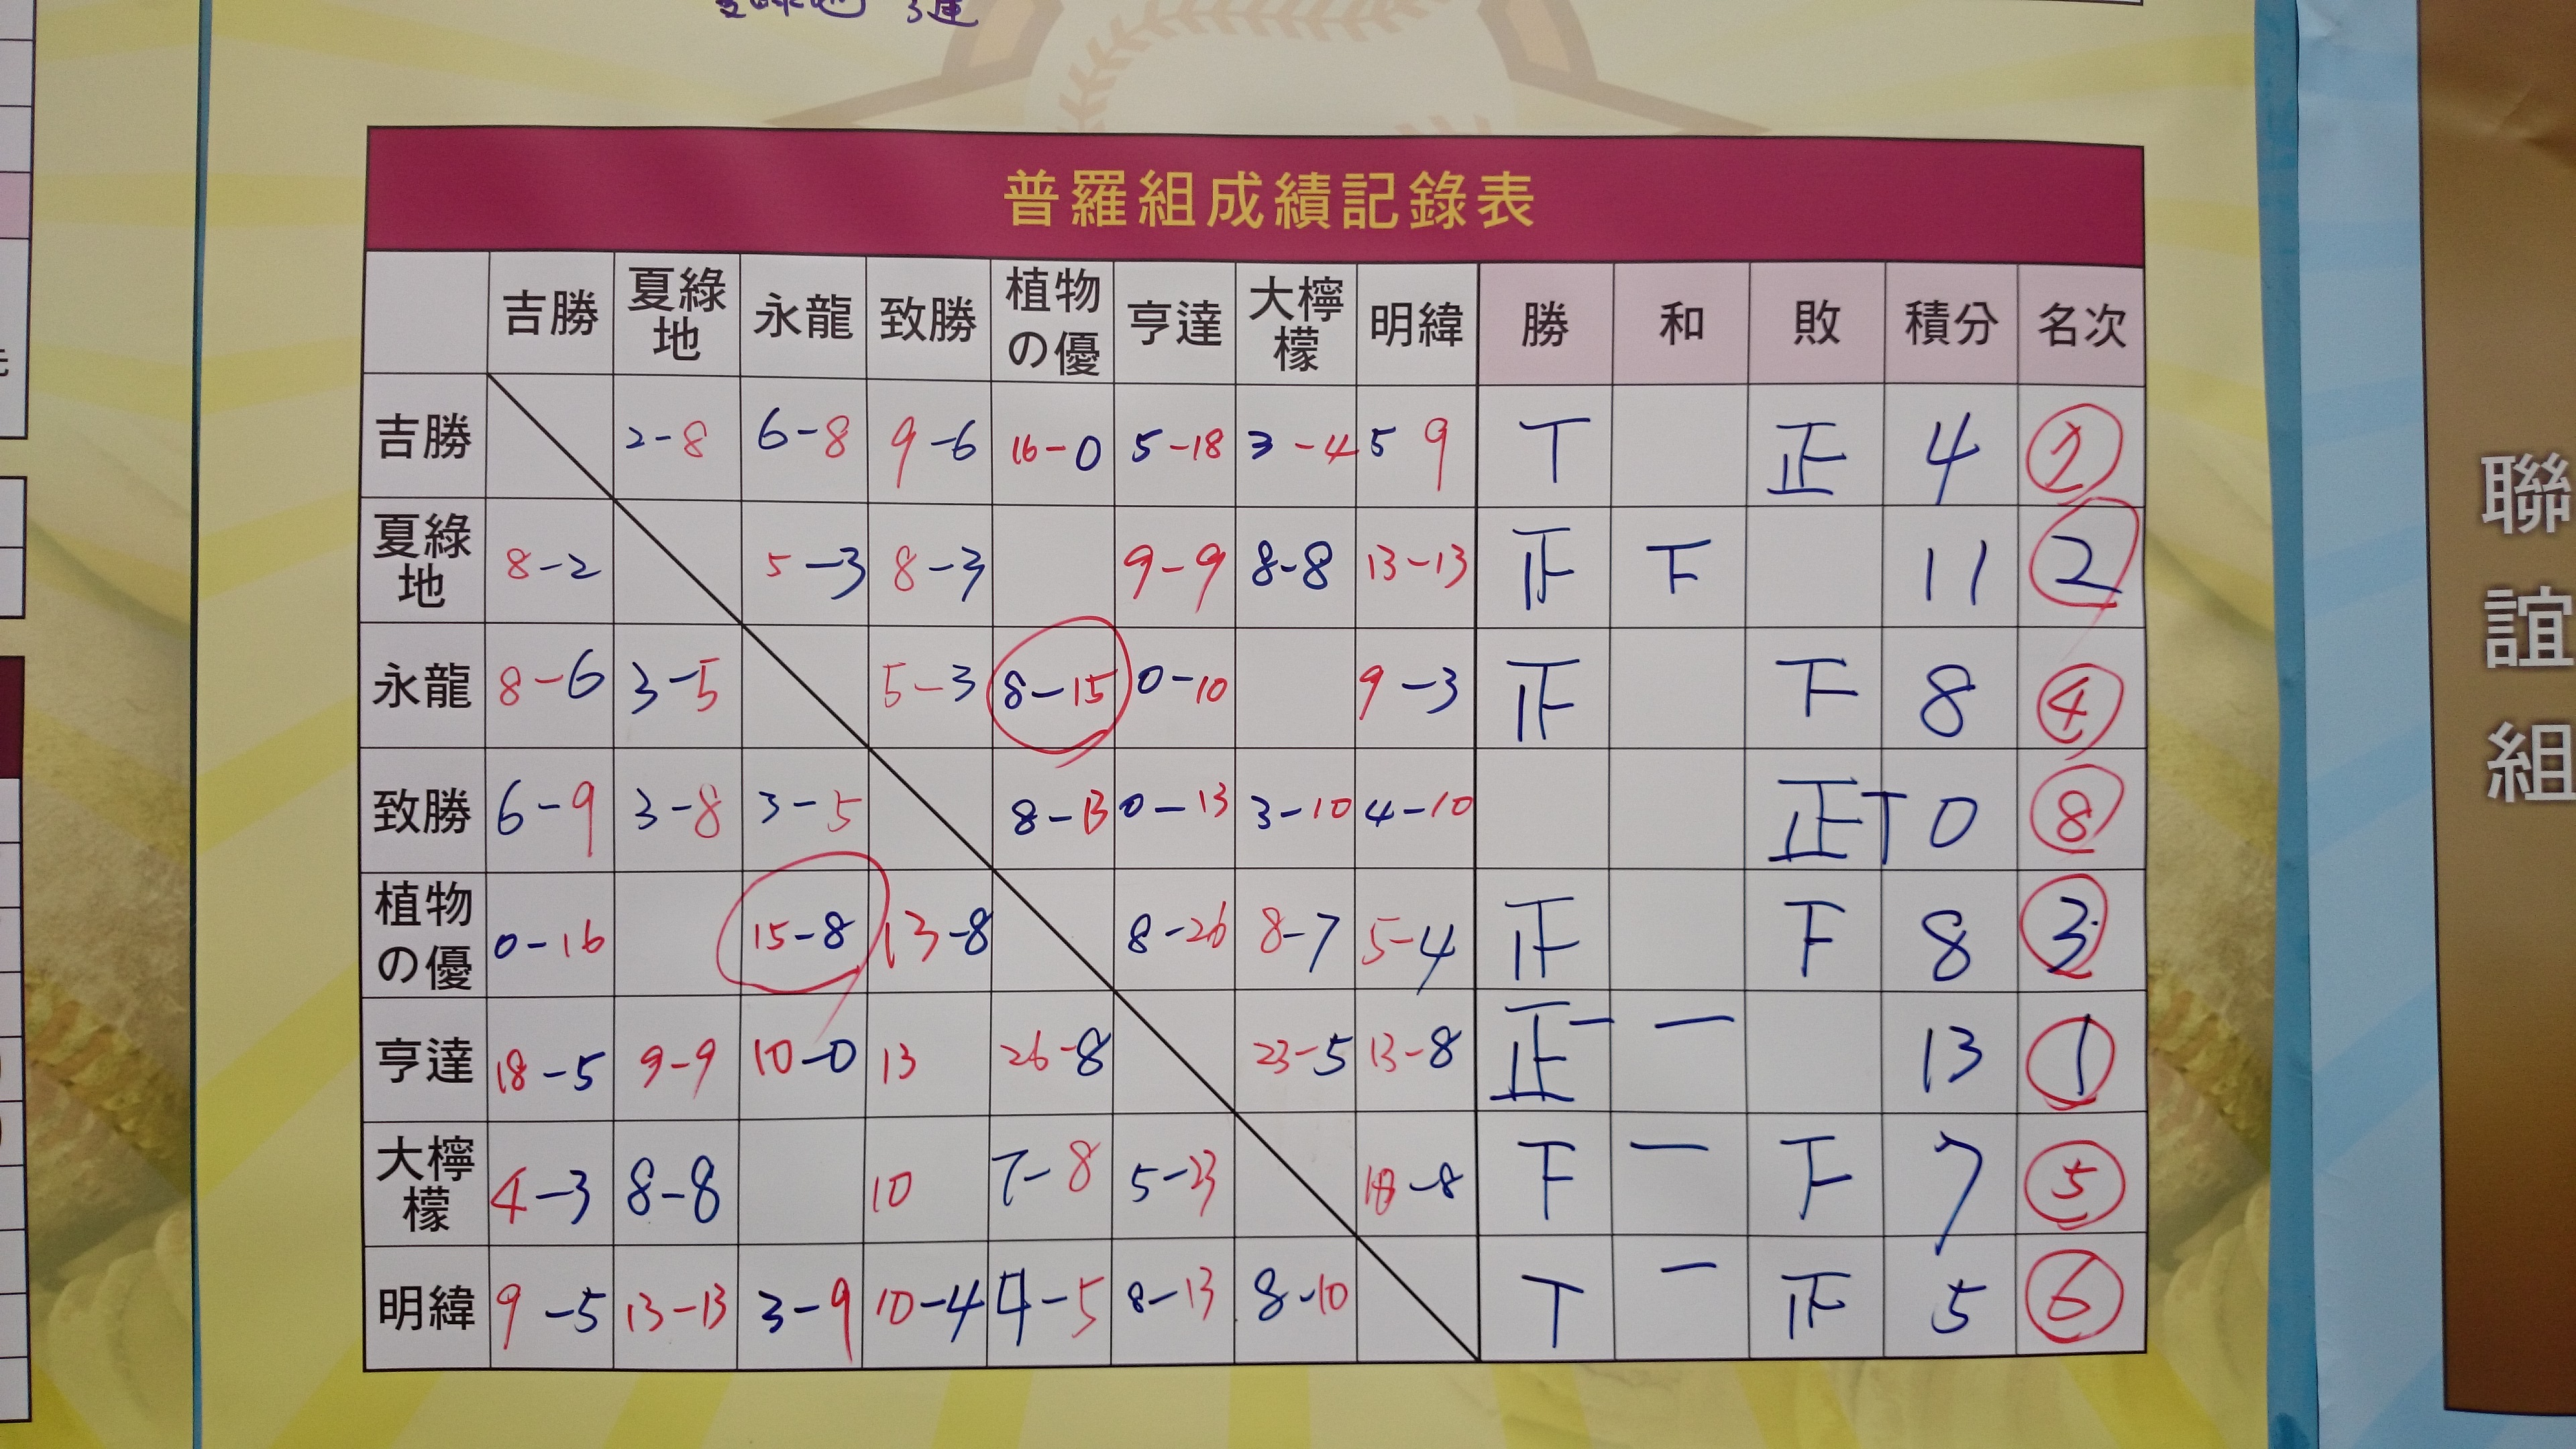 3連
普羅組成績記錄表
吉勝 夏綠地 永龍 致勝 植物の優 亨達 大檸檬 明緯 勝 和 敗 積分 名次
吉勝 2-8 6-8 9-6 16-0 5-18 3-4 5 9 T 正 4
夏綠地 8-2 5-3 8-3 9-9 8-8 13-13 正 下 11 2
永龍 8-6 3-5 5-3 8-15 0-10 9-3 正 下 8 4
致勝 6-9 3-8 3-5 8-13 0-13 3-10 4-10 正T 0 8
植物の優 0-16 15-8 13-8 8-26 8-7 5-4 正 下 8 3
亨達 18-5 9-9 10-0 13 26-8 23-5 13-8 正一 一 13 1
大檸檬 4-3 8-8 10 7-8 5-23 -8 下 一 下 7 5
明緯 9-5 13-13 3-9 10-4 4-5 8-13 8-10 T 一 正 5 6
聯誼組